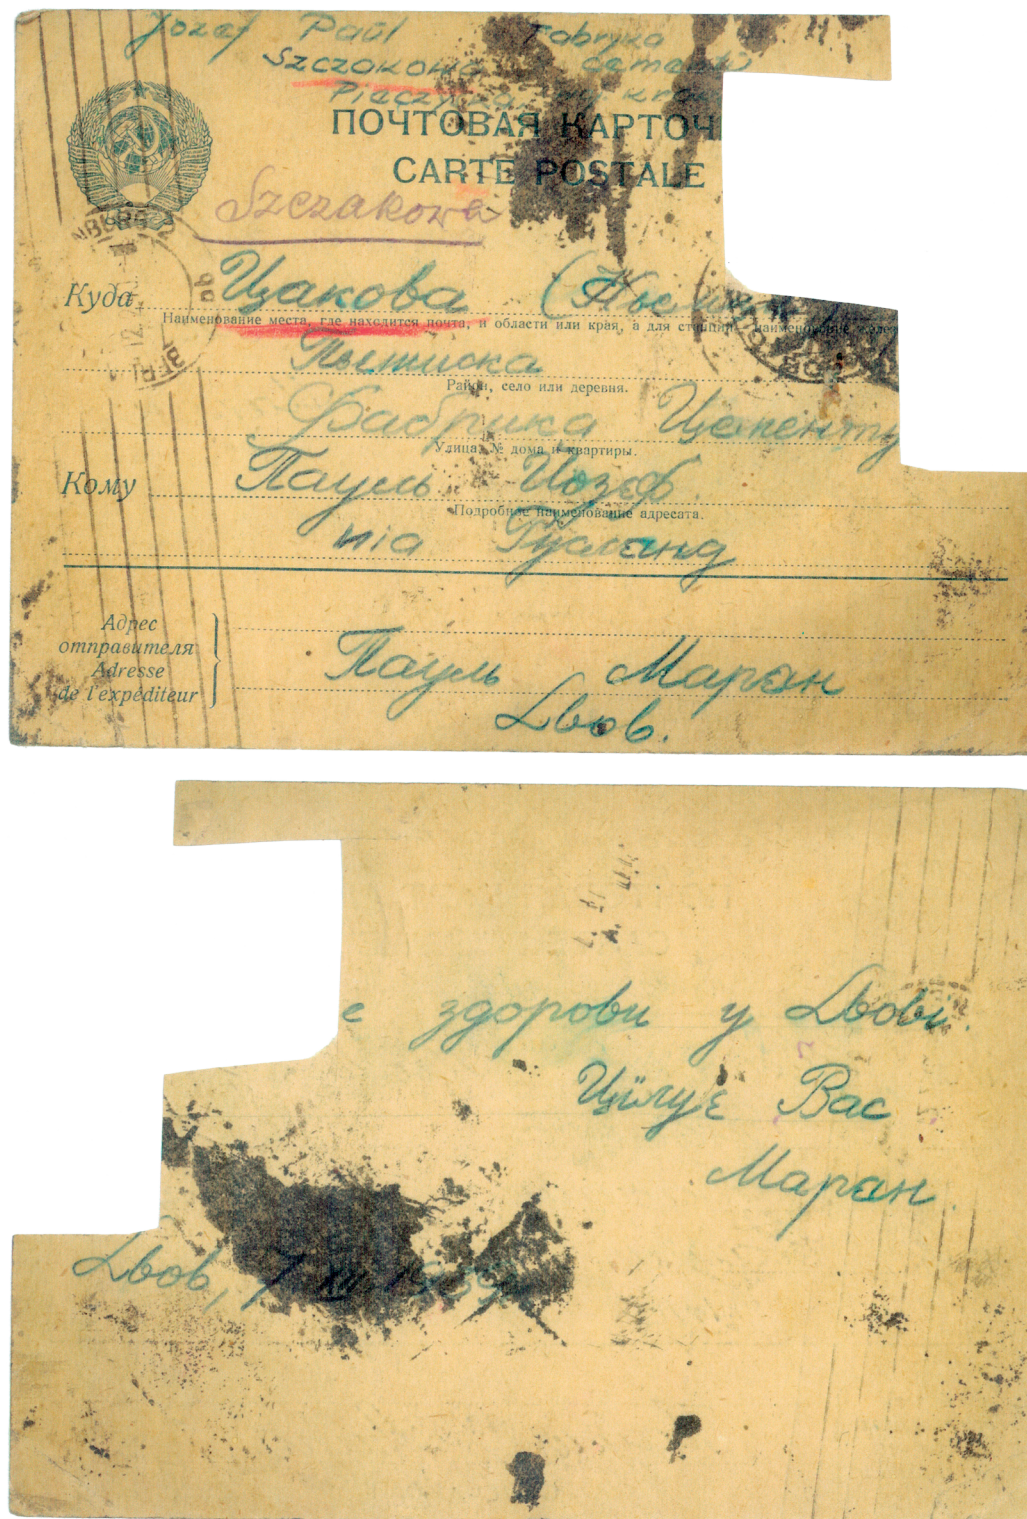 Józef Paul Fabryka
Szczakowa cementu
Pieczyska
ПОЧТОВАЯ КАРТОЧ
CARTE POSTALE
Szczakowa
Куда
Цакова
Наименование места, где находится почта, и области или края, а для станций — наименование желез
Район, село или деревня.
Фабрика Цементу
Улица, № дома и квартиры.
Кому Пауль Йозеф.
Подробное наименование адресата.
Адрес
отправителя
Adresse
de l'expéditeur
Пауль Мариан
Львов.
є здорови у Львові.
Цілує Вас
Мариан.
Львов, 7 XII 1939